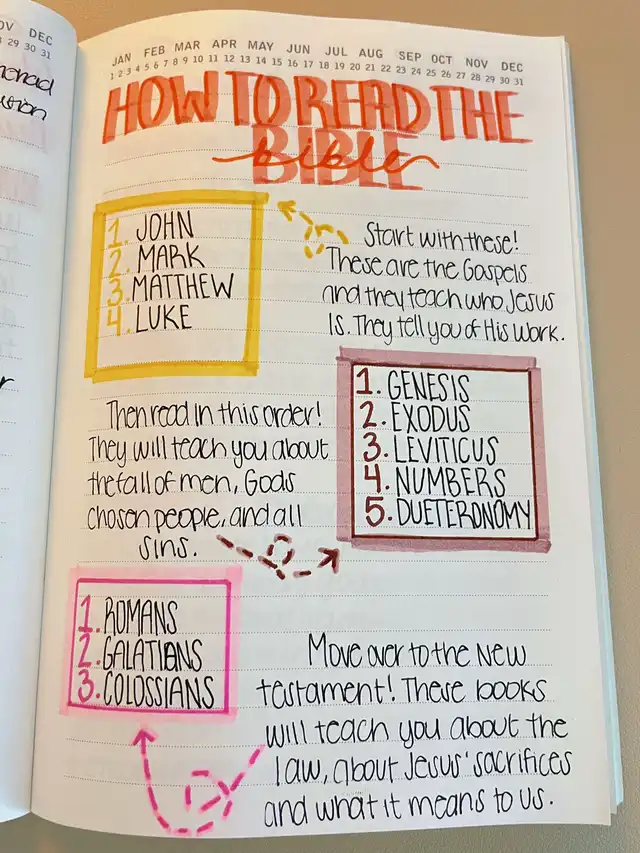 OV DEC
28 29 30 31
JAN FEB MAR APR MAY JUN JUL AUG SEP OCT NOV DEC
1 2 3 4 5 6 7 8 9 10 11 12 13 14 15 16 17 18 19 20 21 22 23 24 25 26 27 28 29 30 31
HOW TO READ THE
BIBLE
bible
1. JOHN
2. MARK
3. MATTHEW
4. LUKE
Start with these!
These are the Gospels
and they teach who Jesus
is. They tell you of His work.
Then read in this order!
They will teach you about
the fall of men, Gods
chosen people, and all
sins.
1. GENESIS
2. EXODUS
3. LEVITICUS
4. NUMBERS
5. DUETERONOMY
1. ROMANS
2. GALATIANS
3. COLOSSIANS
Move over to the New
testament! These books
will teach you about the
law, about Jesus' sacrifices
and what it means to us.